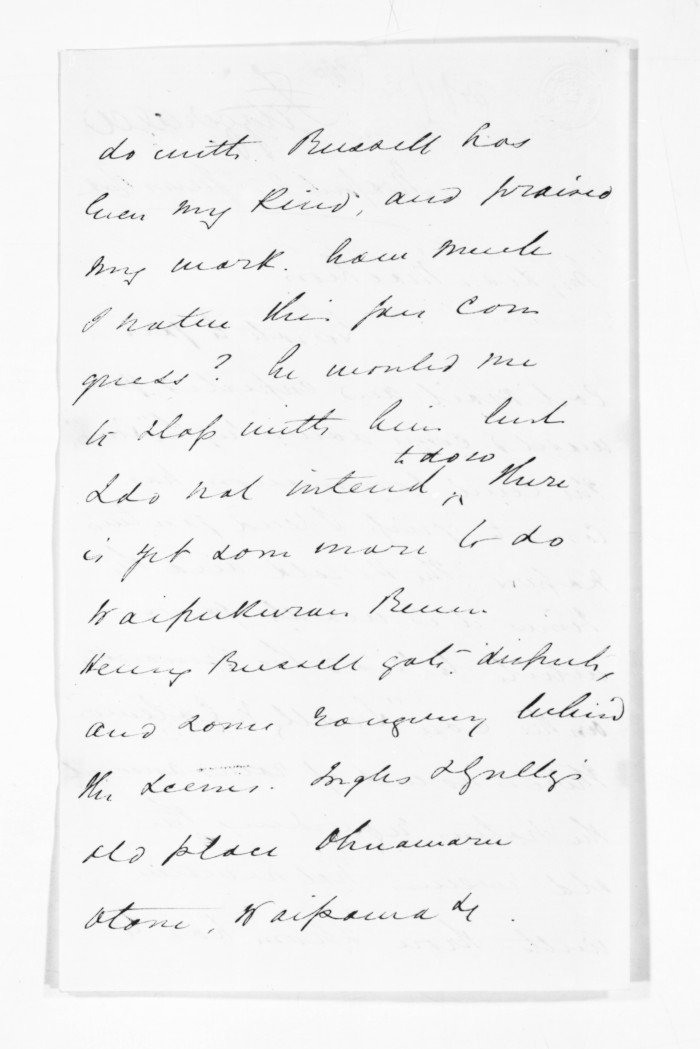 do with. Russell has
been my kind, and praised
my work. how much
I value this you can
guess? he wanted me
to stop with him but
I do not intend to do so There
is yet some more to do
Waipukurau
Henry Russell dispute,
and some roguery behind
the scenes. Inglis &
old place
, Waipawa &c.